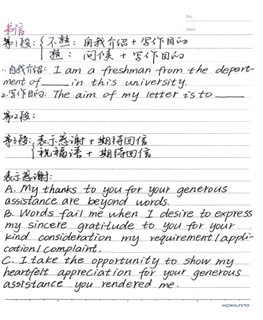 No.
Date
书信
第1段: {不熟: 自我介绍 + 写作目的
熟: 问候 + 写作目的
1. 自我介绍: I am a freshman from the depart-
ment of ____ in this university.
2. 写作目的: The aim of my letter is to ____
第2段:
第3段: {表示感谢 + 期待回信
祝福语 + 期待回信
表示感谢:
A. My thanks to you for your generous
assistance are beyond words.
B. Words fail me when I desire to express
my sincere gratitude to you for your
kind consideration my requirement/appli-
cation/complaint.
C. I take the opportunity to show my
heartfelt appreciation for your generous
assistance you rendered me.
KOKUYO